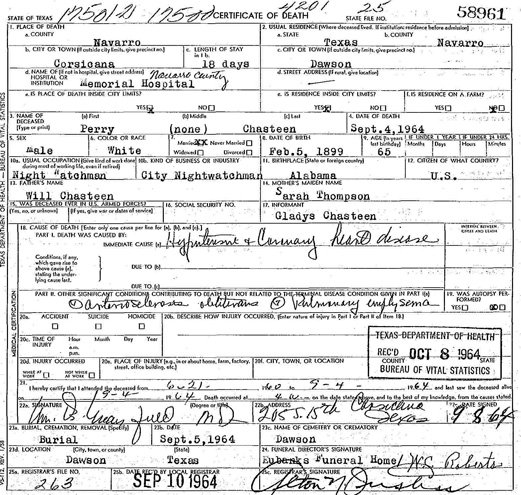 17501-21 17500 4201 25
STATE OF TEXAS CERTIFICATE OF DEATH STATE FILE NO. 58961
1. PLACE OF DEATH 2. USUAL RESIDENCE (Where deceased lived. If institution: residence before admission)
a. COUNTY a. STATE b. COUNTY
Navarro Texas Navarro
b. CITY OR TOWN (If outside city limits, give precinct no.) c. LENGTH OF STAY c. CITY OR TOWN (If outside city limits, give precinct no.)
Corsicana 18 days Dawson
d. NAME OF (If not in hospital, give street address) Navarro County d. STREET ADDRESS (If rural, give location)
HOSPITAL OR INSTITUTION Memorial Hospital
e. IS PLACE OF DEATH INSIDE CITY LIMITS? e. IS RESIDENCE INSIDE CITY LIMITS? f. IS RESIDENCE ON A FARM?
YES NO YES NO YES NO
3. NAME OF DECEASED (Type or print) (a) First (b) Middle (c) Last 4. DATE OF DEATH
Perry (none) Chasteen Sept.4,1964
5. SEX 6. COLOR OR RACE 7. Married Never Married Widowed Divorced 8. DATE OF BIRTH 9. AGE IF UNDER 1 YEAR IF UNDER 24 HRS.
Male White Feb.5, 1899 65 Months Days Hours Minutes
10a. USUAL OCCUPATION (Give kind of work done during most of working life, even if retired) 10b. KIND OF BUSINESS OR INDUSTRY 11. BIRTHPLACE (State or foreign country) 12. CITIZEN OF WHAT COUNTRY?
Night Watchman City Nightwatchman Alabama U.S.
13. FATHER'S NAME 14. MOTHER'S MAIDEN NAME
Will Chasteen Sarah Thompson
15. WAS DECEASED EVER IN U.S. ARMED FORCES? 16. SOCIAL SECURITY NO. 17. INFORMANT
(Yes, no, or unknown) (If yes, give war or dates of service) Gladys Chasteen
18. CAUSE OF DEATH [Enter only one cause per line for (a), (b), and (c).] INTERVAL BETWEEN ONSET AND DEATH
PART I. DEATH WAS CAUSED BY:
IMMEDIATE CAUSE (a) Hypertensive & Coronary heart disease
Conditions, if any, which gave rise to above cause (a), stating the underlying cause last. DUE TO (b)
DUE TO (c)
PART II. OTHER SIGNIFICANT CONDITIONS CONTRIBUTING TO DEATH BUT NOT RELATED TO THE TERMINAL DISEASE CONDITION GIVEN IN PART I(a) 19. WAS AUTOPSY PERFORMED?
Arteriosclerosis obliterans Pulmonary emphysema YES NO
20a. ACCIDENT SUICIDE HOMICIDE 20b. DESCRIBE HOW INJURY OCCURRED. (Enter nature of injury in Part I or Part II of Item 18.)
20c. TIME OF INJURY Hour a.m. p.m. Month Day Year
TEXAS DEPARTMENT OF HEALTH
REC'D OCT 8 1964
BUREAU OF VITAL STATISTICS
20d. INJURY OCCURRED 20e. PLACE OF INJURY (e.g., in or about home, farm, factory, street, office building, etc.) 20f. CITY, TOWN, OR LOCATION COUNTY STATE
WHILE AT WORK NOT WHILE AT WORK
21. I hereby certify that I attended the deceased from 6-21- 1960 to 9-4- 1964 and last saw the deceased alive
on 9-4 1964 Death occurred at m. on the date stated above, and to the best of my knowledge, from the causes stated.
22a. SIGNATURE (Degree or title) 22b. ADDRESS 22c. DATE SIGNED
MD 205 S. 15th Corsicana Texas 9 8 64
23a. BURIAL, CREMATION, REMOVAL (Specify) 23b. DATE 23c. NAME OF CEMETERY OR CREMATORY
Burial Sept.5,1964 Dawson
23d. LOCATION (City, town, or county) (State) 24. FUNERAL DIRECTOR'S SIGNATURE
Dawson Texas Eubanks Funeral Home Roberts
25a. REGISTRAR'S FILE NO. 25b. DATE REC'D BY LOCAL REGISTRAR 25c. REGISTRAR'S SIGNATURE
263 SEP 10 1964
TEXAS DEPARTMENT OF HEALTH — BUREAU OF VITAL STATISTICS
MEDICAL CERTIFICATION